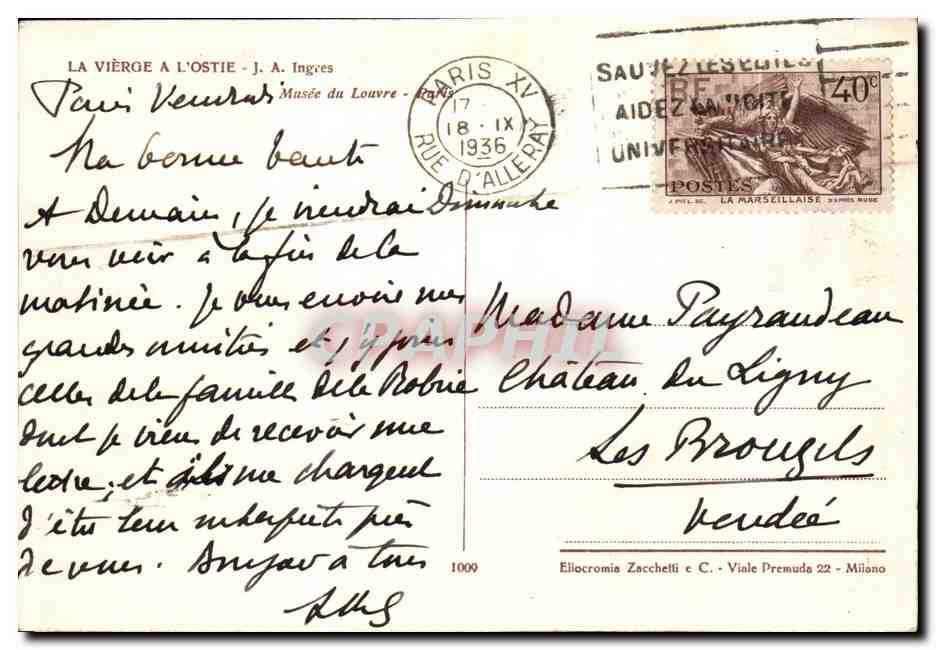 LA VIÈRGE A L'OSTIE - J. A. Ingres
Musée du Louvre - Paris
Paris Vendredi
Ma bonne
A Demain, je viendrai Dimanche
vous voir à la fin de la
matinée. Je vous envoie mes
grandes amitiés et j'y joins
celles de la famille de la Robrie
dont je viens de recevoir une
lettre, et ils me chargent
d'être leur interprète près
de vous. Bonjour à tous
PARIS XV
17
18 - IX
1936
RUE D'ALLERAY
SAUVEZ LES ELITES
AIDEZ LA CITE
UNIVERSITAIRE
RF
40c
POSTES
J. PIEL. SC. LA MARSEILLAISE D'APRÈS RUDE
CPAPHIL
Madame Payraudeau
Château du Ligny
Les Brouzils
Vendée
1009
Eliocromia Zacchetti e C. - Viale Premuda 22 - Milano